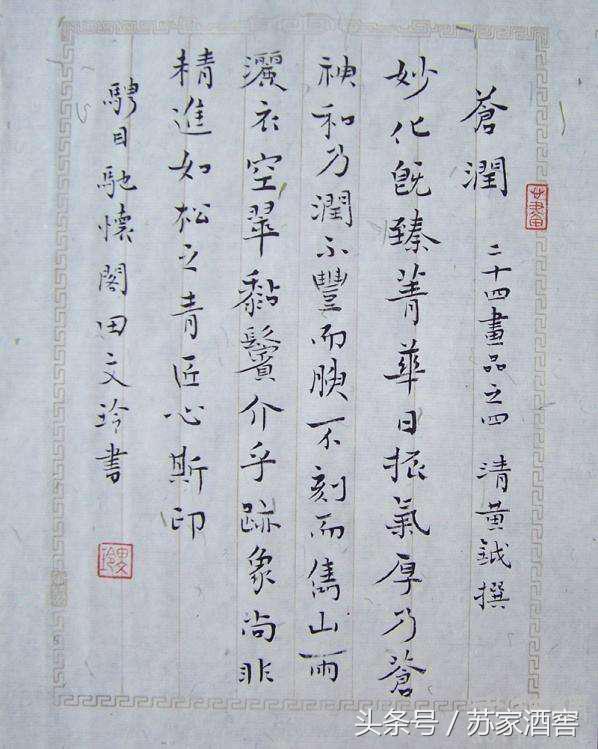 蒼潤 二十四畫品之四 清黄鉞撰
妙化既臻菁華日振氣厚乃蒼
神和乃潤不豐而腴不刻而雋山雨
灑衣空翠黏鬢介乎跡象尚非
精進如松之青匠心斯印
騁目馳懷閣田文玲書
头条号 / 苏家酒窖